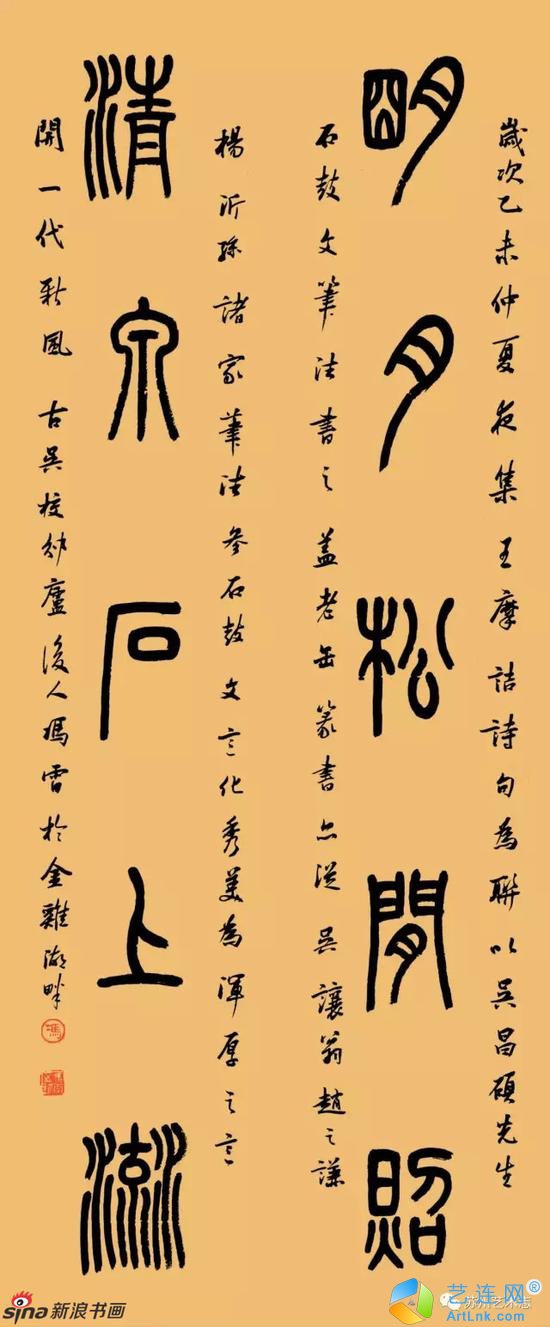 歲次乙未仲夏夜集王摩詰詩句為聯以吳昌碩先生
明月松間照
石鼓文筆法書之蓋老缶篆書亦從吳讓翁趙之謙
楊沂孫諸家筆法參石鼓文意化秀美為渾厚之意
清泉石上流
開一代新風 古吳校紗廬後人馮雷於金雞湖畔
馮
sina新浪书画
苏州艺术志
艺连网®
ArtLnk.com